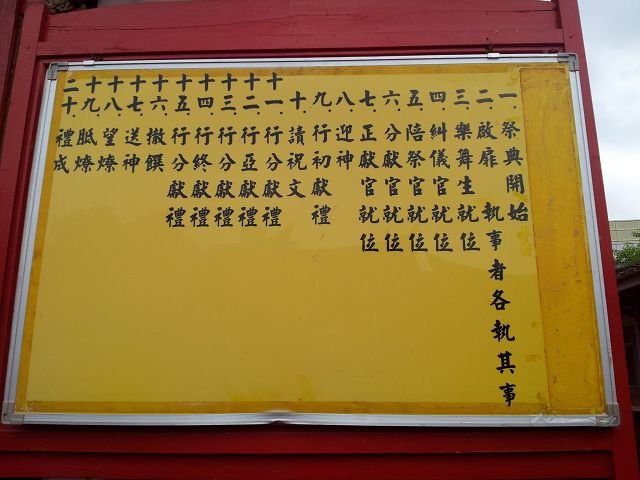 一.祭典開始
二.啟扉 執事者各執其事
三.樂舞生就位
四.糾儀官就位
五.陪祭官就位
六.分獻官就位
七.正獻官就位
八.迎神
九.行初獻禮
十.讀祝文
十一.行分獻禮
十二.行亞獻禮
十三.行分獻禮
十四.行終獻禮
十五.行分獻禮
十六.撤饌
十七.送神
十八.望燎
十九.眂燎
二十.禮成